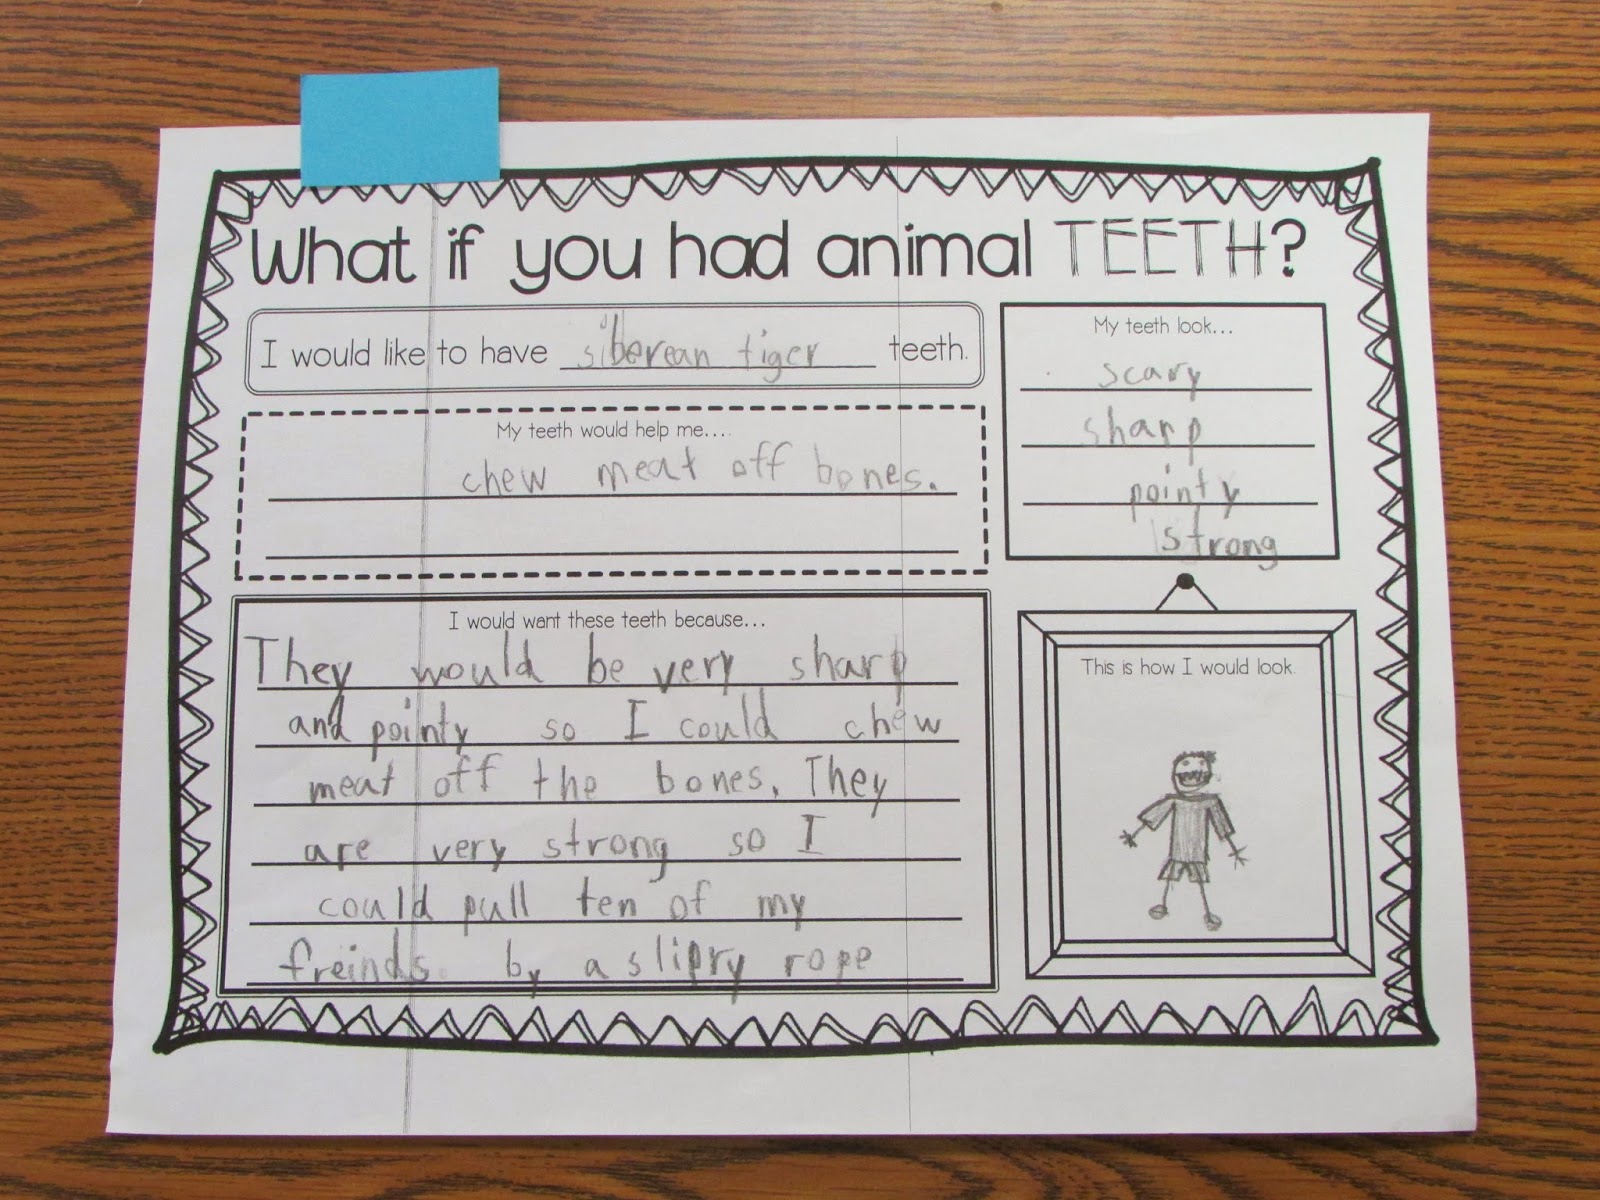 What if you had animal TEETH?
I would like to have siberean tiger teeth.
My teeth would help me....
chew meat off bones.
I would want these teeth because...
They would be very sharp
and pointy so I could chew
meat off the bones. They
are very strong so I
could pull ten of my
freinds by a slipry rope
My teeth look...
scary
sharp
pointy
strong
This is how I would look.